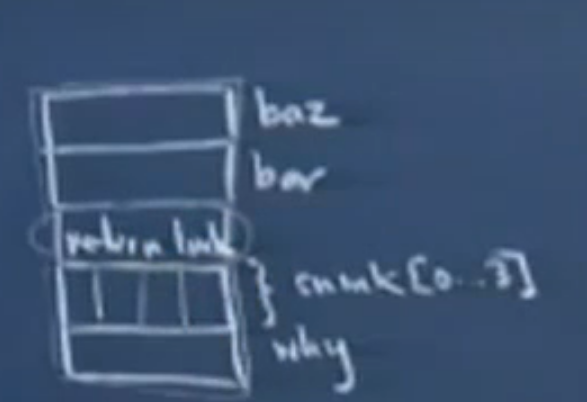 baz
bar
return link
snink[0...3]
why